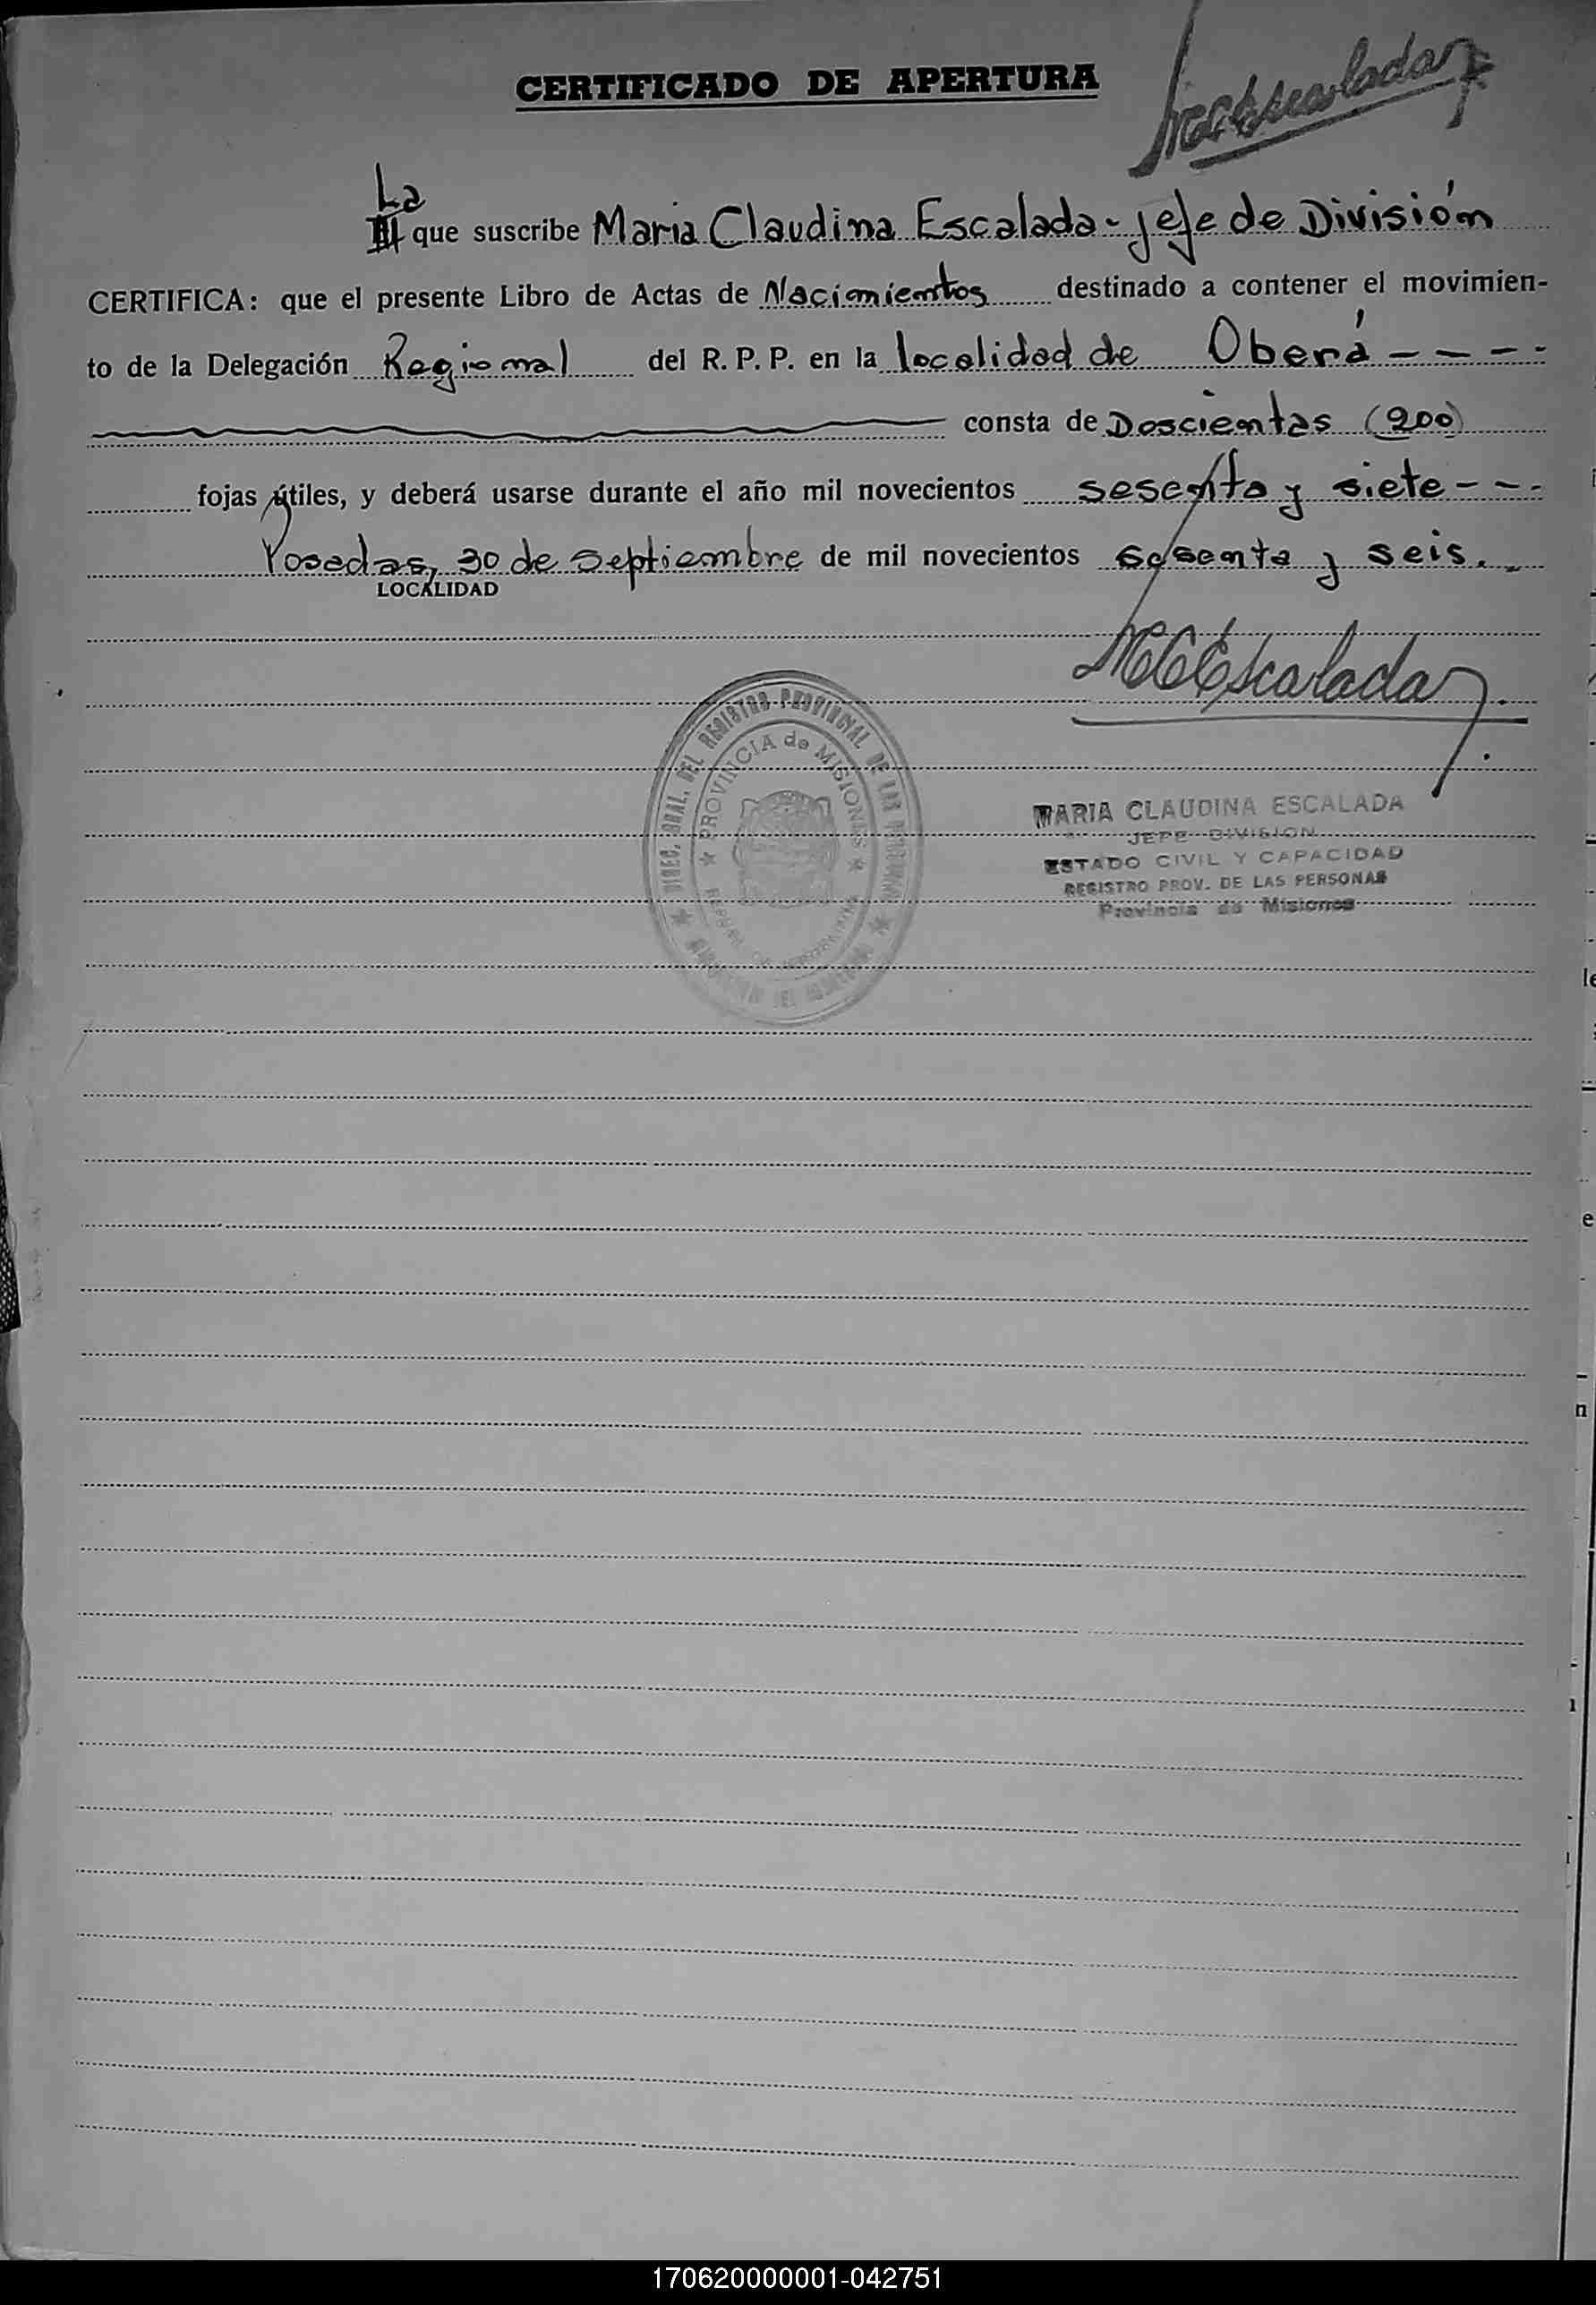 CERTIFICADO DE APERTURA
MCEscalada
La
El que suscribe Maria Claudina Escalada - jefe de División
CERTIFICA: que el presente Libro de Actas de Nacimientos destinado a contener el movimien-
to de la Delegación Regional del R. P. P. en la localidad de Oberá - - - -
consta de Doscientas (200)
fojas útiles, y deberá usarse durante el año mil novecientos sesenta y siete - - -
Posadas, 30 de Septiembre de mil novecientos sesenta y seis.
LOCALIDAD
MCEscalada
DIREC. GRAL. DEL REGISTRO PROVINCIAL DE LAS PERSONAS
PROVINCIA de MISIONES
MARIA CLAUDINA ESCALADA
JEFE DIVISION
ESTADO CIVIL Y CAPACIDAD
REGISTRO PROV. DE LAS PERSONAS
Provincia de Misiones
170620000001-042751